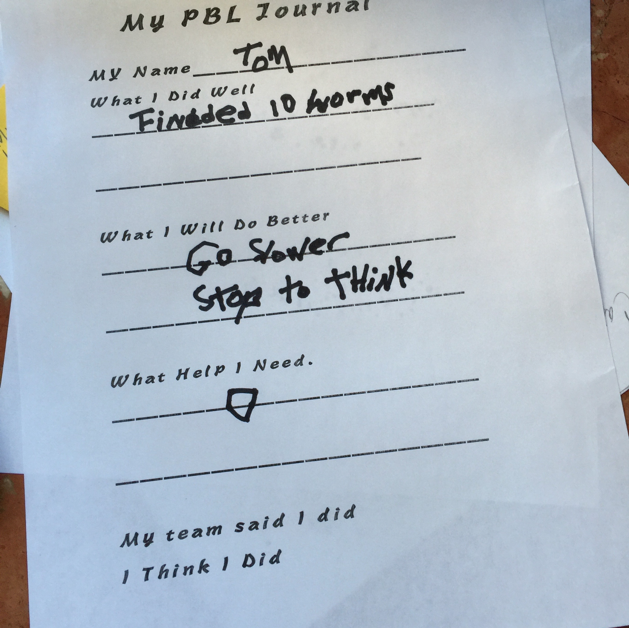 My PBL Journal
My Name Tom
What I Did Well
Finded 10 worms
What I Will Do Better
Go Slower
Stop to THINK
What Help I Need.
My team said I did
I Think I Did